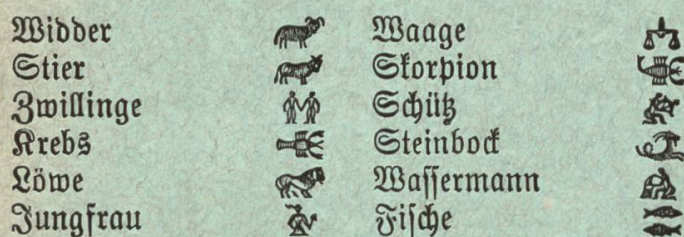 Widder
Stier
Zwillinge
Krebs
Löwe
Jungfrau
Waage
Skorpion
Schütz
Steinbock
Wassermann
Fische